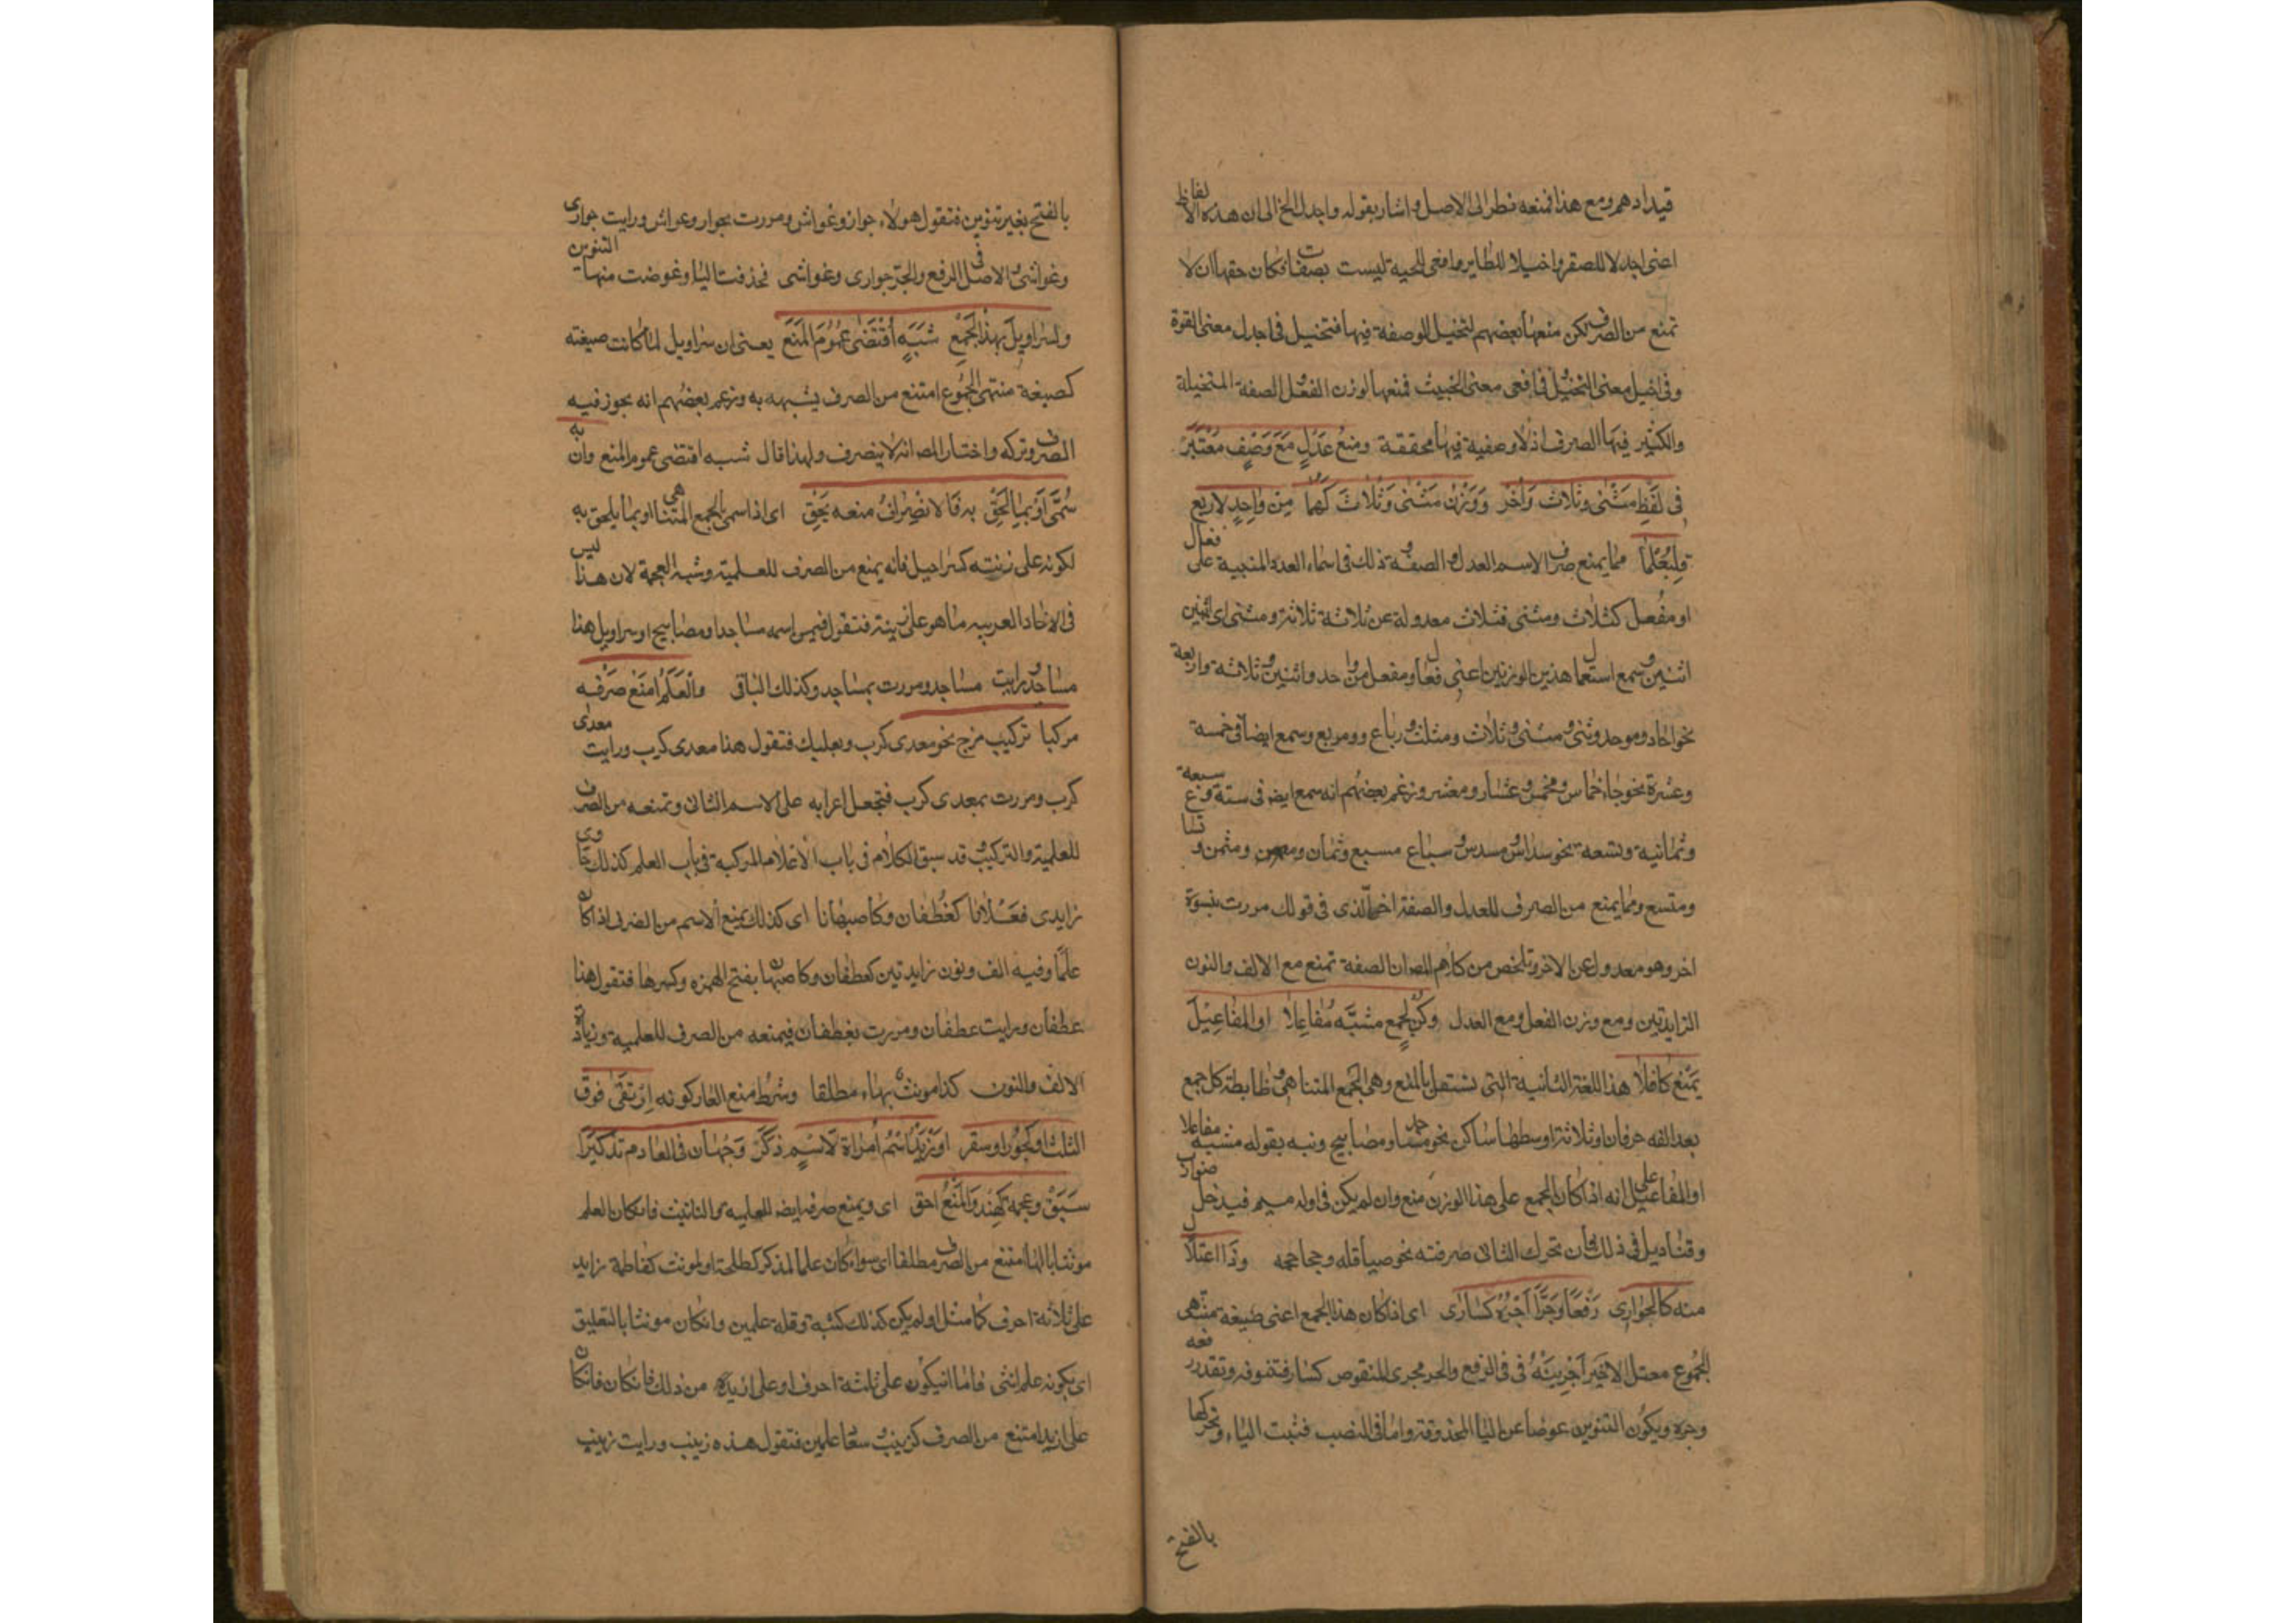 قيد ادهم ومع هذا فمنعه نظر الى الاصل واشار بقوله واجدل الخ الى ان هذه الالفاظ
اعنى اجدلا للصقر واخيلا للطاير وافعى للحية ليست بصفات فكان حقها ان لا
تمنع من الصرف لكن منعها بعضهم لتخيل الوصفة فيها فتخيل فى اجدل معنى القوة
وفى اخيل معنى التخيل فى افعى معنى الخبيث فمنعها لوزن الفعل الصفة المتخيلة
والكثير فيها الصرف اذ لا وصفية فيها محققة ومنعُ عَدْلٍ مَعَ وَصْفٍ مُعْتَبَرْ
فى لَفْظِ مَثْنى وثلاث وَاُخَر وَوَزْنُ مَثْنى وَثُلاثَ كَهُمَا مِنْ وَاحِدٍ لاربع
فليُعْلَما مما يمنع صرف الاسم العدل والصفة وذلك فى اسماء العدد المبنية على فعال
او مفعل كثلاث ومثنى فثلاث معدولة عن ثلاثة ثلاثة ومثنى اى اثنين
اثنين وسمع استعمال هذين الوزنين اعنى فعال ومفعل من واحد واثنين وثلاثة واربعة
نحو احاد وموحد وثنى ومثنى وثلاث ومثلث ورباع ومربع وسمع ايضا فى خمسة
وعشرة نحو جاء خماس ومخمس وعشار ومعشر وزعم بعضهم انه سمع ايض فى ستة وسبعة
وثمانية وتسعة نحو سداس ومسدس وسباع مسبع وثمان ومثمن وتسا
ومتسع ومما يمنع من الصرف للعدل والصفة اخر الذى فى قولك مررت بنسوة
اخر وهو معدول عن الاخر وتلخص من كلام المص ان الصفة تمنع مع الالف والنون
الزايدتين ومع وزن الفعل ومع العدل وكن لجمع مشبَّه مُفَاعِلا او المفاعِيلَ
يَمْنَعُ كافلا هذا اللغة الثانية التى تستقل بالمنع وهى الجمع المتناهى وظابطه كل جمع
بعد الفه حرفان او ثلاثة اوسطها ساكن نحو مساجد ومصابيح ونبه بقوله مشبه مفاعلا
او المفاعيل على انه اذا كان الجمع على هذا الوزن منع وان لم يكن فى اوله ميم فيدخل ضوارب
وقناديل فى ذلك فان تحرك الثانى صرفته نحو صياقله وجحاجحه وَذَا اعتلال
منه كالجوارى رَفْعًا وَجَرًّا اَجْرِهِ كَسَارى اى اذا كان هذا الجمع اعنى صيغه منتهى
الجموع معتل الاخير اَجْرِيْتَهُ فى فى الرفع والجر مجرى المنقوص كسار فتنونه وتقدر رفعه
وجره ويكون التنوين عوضا عن اليا المحذوفة واما فى النصب فتثبت الياء وتحركها
بالفتح
بالفتح بغير تنوين فتقول هولاء جوار وغواش ومررت بجوار وغواش ورايت جوارى
وغواشى والاصل فى الرفع والجر جوارى وغواشى فحذفت اليا وعوضت منها التنوين
ولسراويل بهذا الجمع شَبَهٍ اقْتَضى عُمُومَ المَنَع يعنى ان سراويل لما كانت صيغته
كصيغة منتهى الجموع امتنع من الصرف يشبهه به وزعم بعضهم انه يجوز فيه
الصرف وتركه واختار المص انه لا ينصرف ولهذا قال شبه اقتضى عموم المنع وان به
سُمِّى اَوْ بما لَحِقْ به فَالانْصِرافُ منعه يَحِقْ اى اذا سمى بالجمع المتناهى او بما يلحق به
لكونه على زنته كسراحيل فانه يمنع من الصرف للعلمية وشبه العجمة لان هذا ليس
فى الاحاد العربيه ما هو على زنته فتقول فيمن اسمه مساجد او مصابيح او سراويل هذا
مساجد ورايت مساجد ومررت بمساجد وكذلك الباقى والْعَلَمَ امنَعْ صَرْفَه
مركبا تركيب مزج نحو معدى كرب وبعلبك فتقول هذا معدى كرب ورايت معدى
كرب ومررت بمعدى كرب فتجعل اعرابه على الاسم الثانى وتمنعه من الصرف
للعلمية والتركيب وقد سبق الكلام فى باب الاعلام المركبة فى باب العلم كذلك حاوى
زايدى فعلانا كغطفان وكاصبهانا اى كذلك يمنع الاسم من الصرف اذا كان
علما وفيه الف ونون زايدتين كعطفان وكاصبهان بفتح الهمزه وكسرها فتقول هذا
عطفان ورايت عطفان ومررت بغطفان فيمنعه من الصرف للعلمية وزيادة
الالف والنون كذا مونث بهاء مطلقا وشرط منع العار كونه اِرْتقى فوق
الثلث او كجُورَ او سقر او زَيْدٍ اسْمُ امْرَاة لاَ اسْمٍ ذَكَرْ وَجْهان فى العادم تذكيرًا
سَبَقْ وعجمة كهِنْدَ وَالْمَنْعُ احق اى ويمنع صرفه ايض للعلميه والتانيث فان كان العلم
مونثا بالها امتنع من الصرف مطلقا اى سواء كان علما لمذكر كطلحة او لمونث كفاطمة زايد
على ثلاثة احرف كما مثل او لم يكن كذلك كثبة وقلة علمين وان كان مونثا بالتعليق
اى بكونه علم انثى فاما ان يكون على ثلثة احرف او على ازيد من ذلك فان كان فان كان
على ازيد امتنع من الصرف كزينب وسعاد علمين فتقول هذه زينب ورايت زينب